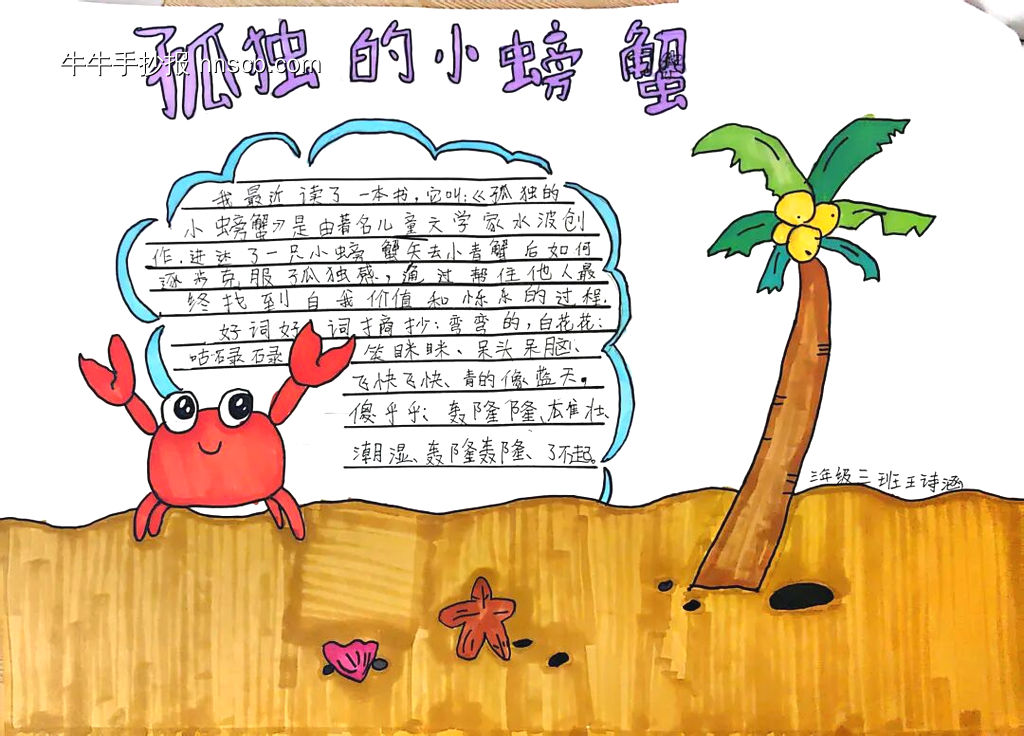 孤独的小螃蟹
牛牛手抄报 nnscb.com
我最近读了一本书，它叫:《孤独的
小螃蟹》是由著名儿童文学家水波创
作.讲述了一只小螃蟹失去小青蟹后如何
逐步克服孤独感，通过帮住他人最
终找到自我价值和快乐的过程.
好词好词摘抄:弯弯的，白花花:
咕碌碌 笑眯眯、呆头呆脑、
飞快飞快、青的像蓝天。
傻乎乎; 轰隆隆、雄壮、
潮湿、轰隆轰隆、了不起。
三年级三班王诗涵